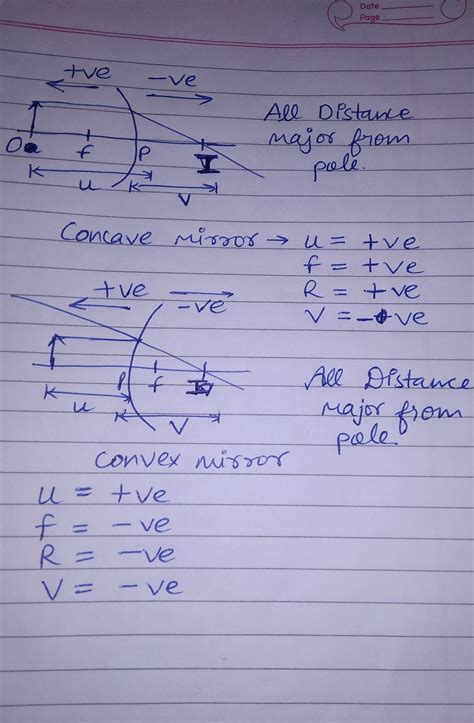 Date
Page
+ve -ve
O f P I
u
V
All Distance
major from
pole.
Concave mirror → u = +ve
f = +ve
R = +ve
V = -ve
+ve -ve
P f I
u
V
All Distance
major from
pole
convex mirror
u = +ve
f = -ve
R = -ve
V = -ve